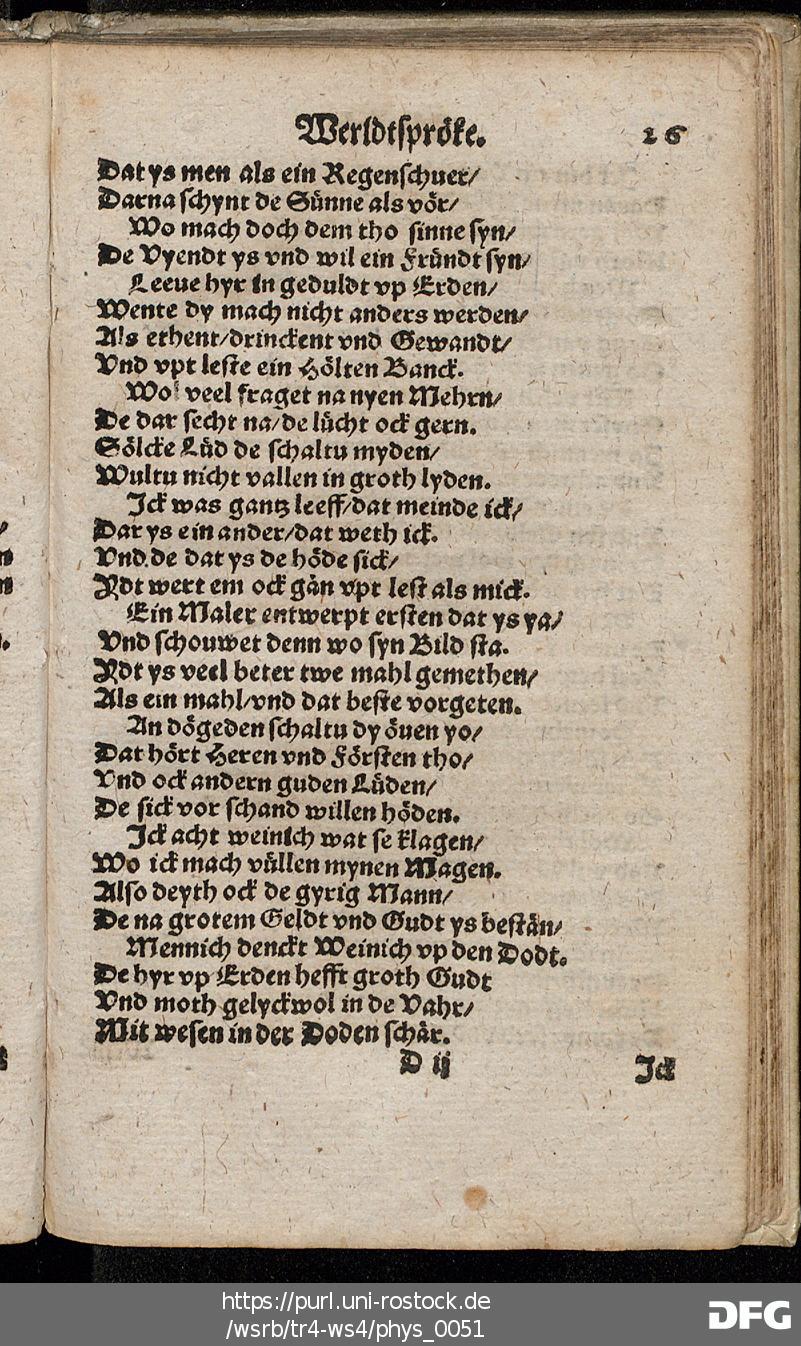 Werldtspröke. 26
Dat ys men als ein Regenschuer/
Darna schynt de Sünne als vör/
Wo mach doch dem tho sinne syn/
De Vyendt ys vnd wil ein Fründt syn/
Leeue hyr in geduldt vp Erden/
Wente dy mach nicht anders werden/
Als ethent/drinckent vnd Gewandt/
Vnd vpt leste ein Hölten Banck.
Wol veel fraget na nyen Mehrn/
De dar secht na/de lücht ock gern.
Sölcke Lüd de schaltu myden/
Wultu nicht vallen in groth lyden.
Ick was gantz leeff/dat meinde ick/
Dar ys ein ander/dat weth ick.
Vnd de dat ys de höde sick/
Ydt wert em ock gän vpt lest als mick.
Ein Maler entwerpt ersten dat ys ya/
Vnd schouwet denn wo syn Bild sta.
Ydt ys veel beter twe mahl gemethen/
Als ein mahl/vnd dat beste vorgeten.
An dögeden schaltu dy öuen yo/
Dat hört Heren vnd Försten tho/
Vnd ock andern guden Lüden/
De sick vor schand willen höden.
Ick acht weinich wat se klagen/
Wo ick mach vüllen mynen Magen.
Also deyth ock de gyrig Mann/
De na grotem Geldt vnd Gudt ys bestän/
Mennich denckt Weinich vp den Dodt.
De hyr vp Erden hefft groth Gudt
Vnd moth gelyckwol in de Vahr/
Mit wesen in der Doden schär.
D ij Ick
https://purl.uni-rostock.de
/wsrb/tr4-ws4/phys_0051
DFG